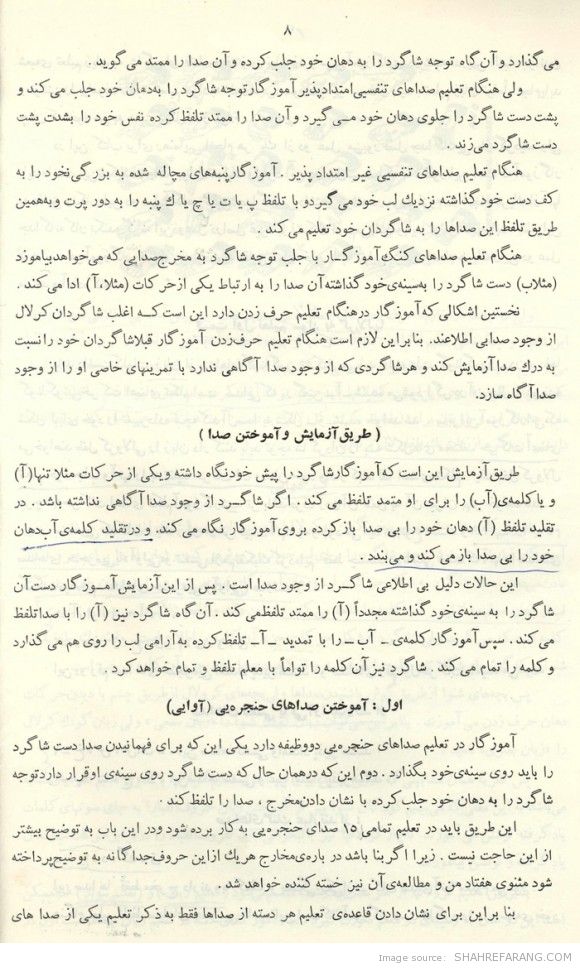 ۸
می گذارد و آن گاه توجه شاگرد را به دهان خود جلب کرده و آن صدا را ممتد می گوید .
ولی هنگام تعلیم صداهای تنفسیی امتداد پذیر آموزگار توجه شاگرد را به دهان خود جلب می کند و
پشت دست شاگرد را جلوی دهان خود مـی گیرد و آن صدا را ممتد تلفظ کرده نفس خود را بشدت پشت
دست شاگرد می زند .
هنگام تعلیم صداهای تنفسیی غیر امتداد پذیر . آموزگار پنبه‌های مچاله شده به بزرگی نخود را به
کف دست خود گذاشته نزدیك لب خود می گیرد و با تلفظ پ یا ت یا چ یا ك پنبه را به دور پرت و به همین
طریق تلفظ این صداها را به شاگردان خود تعلیم می کند .
هنگام تعلیم صداهای گنگ آموزگـار با جلب توجه شاگرد به مخرج صدایی که می خواهد بیاموزد
(مثلا ب) دست شاگرد را به سینه‌ی خود گذاشته آن صدا را به ارتباط یکی از حرکات (مثلا، آ) ادا می کند .
نخستین اشکالی که آموزگار در هنگام تعلیم حرف زدن دارد این است کـه اغلب شاگردان کر لال
از وجود صدا بی اطلاعند. بنابراین لازم است هنگام تعلیم حرف زدن آموزگار قبلا شاگردان خود را نسبت
به درك صدا آزمایش کند و هر شاگردی که از وجود صدا آگاهی ندارد با تمرینهای خاصی او را از وجود
صدا آگاه سازد.
( طریق آزمایش و آموختن صدا )
طریق آزمایش این است که آموزگار شاگرد را پیش خود نگاه داشته و یکی از حرکات مثلا تنها (آ)
و یا کلمه‌ی (آب) را برای او متمد تلفظ می کند . اگر شاگـرد از وجود صدا آگاهی نداشته باشد . در
تقلید تلفظ (آ) دهان خود را بی صدا باز کرده بروی آموزگار نگاه می کند. و در تقلید کلمه‌ی آب دهان
خود را بی صدا باز می کند و می بندد .
این حالات دلیل بی اطلاعی شاگـرد از وجود صدا است . پس از این آزمایش آمـوزگار دست آن
شاگرد را به سینه‌ی خود گذاشته مجدداً (آ) را ممتد تلفظ می کند . آن گاه شاگرد نیز (آ) را با صدا تلفظ
می کند . سپس آموزگار کلمه‌ی ـ آب ـ را با تمدید ـ آـ تلفظ کرده به آرامی لب را روی هم می گذارد
و کلمه را تمام می کند . شاگرد نیز آن کلمه را تواماً با معلم تلفظ و تمام خواهد کرد .
اول : آموختن صداهای حنجره‌یی (آوایی)
آموزگار در تعلیم صداهای حنجره‌یی دو وظیفه دارد یکی این که برای فهمانیدن صدا دست شاگرد
را باید روی سینه‌ی خود بگذارد . دوم این که در همان حال که دست شاگرد روی سینه‌ی او قرار دارد توجه
شاگرد را به دهان خود جلب کرده با نشان دادن مخرج ، صدا را تلفظ کند .
این طریق باید در تعلیم تمامی ۱۵ صدای حنجره‌یی به کار برده شود و در این باب به توضیح بیشتر
از این حاجت نیست . زیرا اگر بنا باشد در باره‌ی مخارج هر یك از این حروف جداگانه به توضیح پرداخته
شود مثنوی هفتاد من و مطالعه‌ی آن نیز خسته کننده خواهد شد .
بنا براین برای نشان دادن قاعده‌ی تعلیم هر دسته از صداها فقط به ذکر تعلیم یکی از صدا های
Image source: SHAHREFARANG.COM